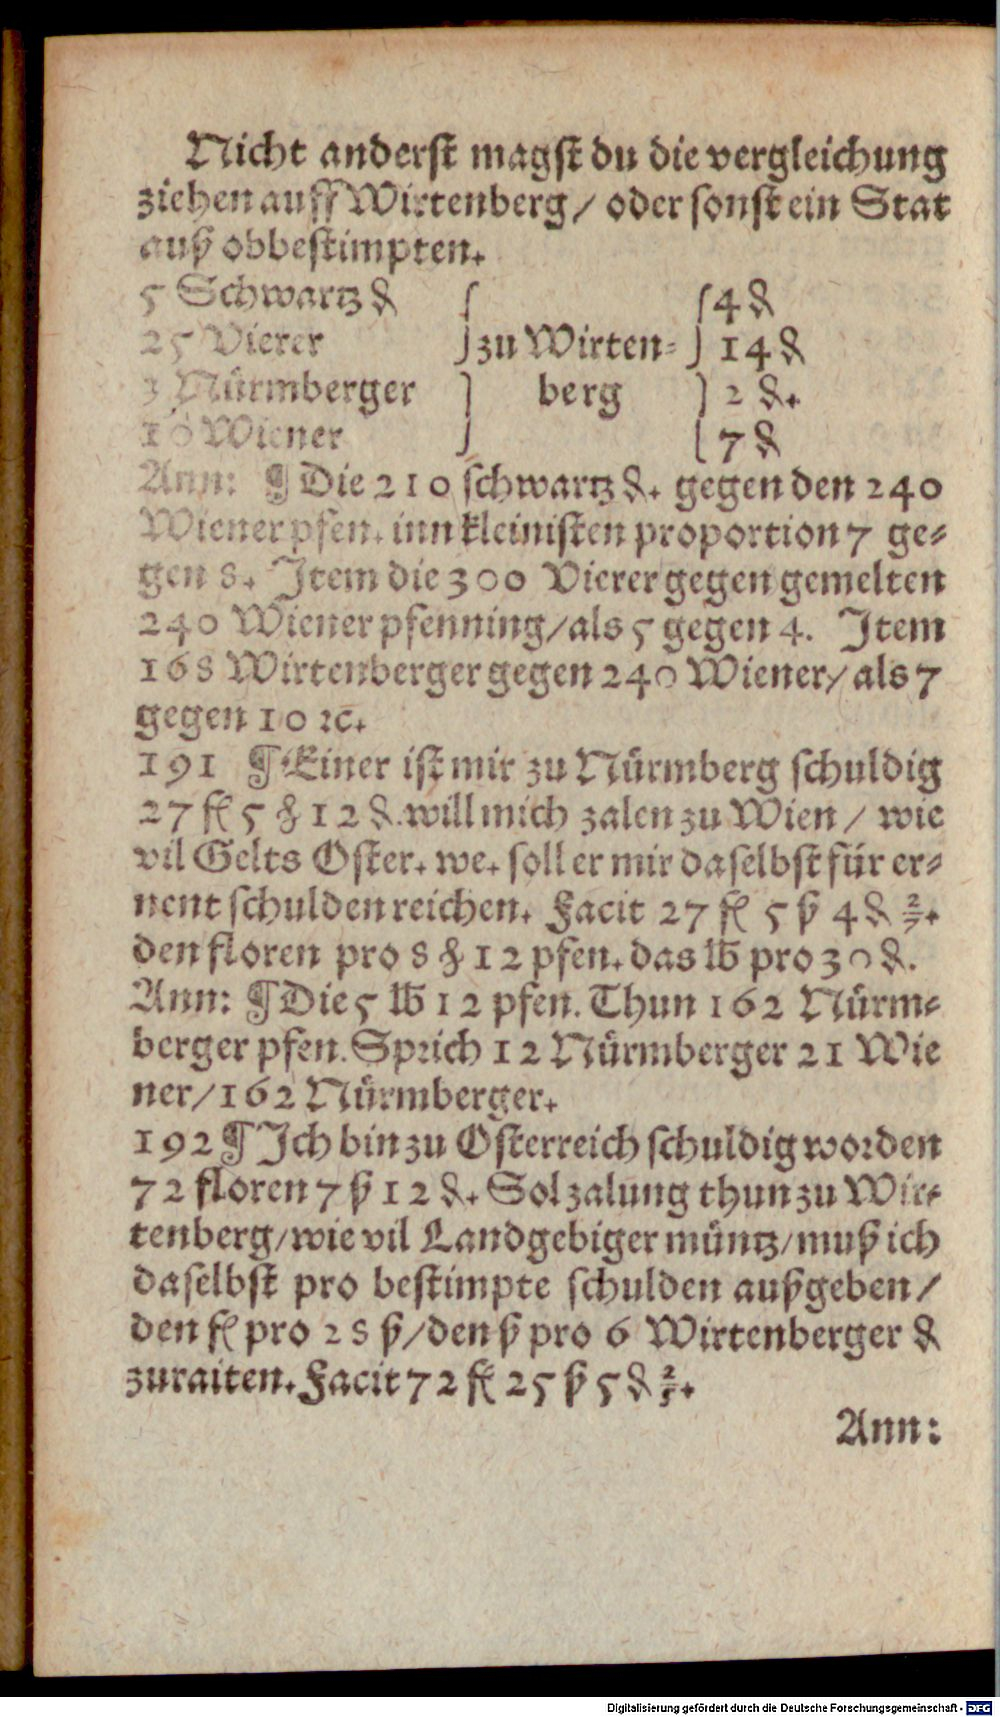 Nicht anderst magst du die vergleichung
ziehen auff Wirtenberg / oder sonst ein Stat
auß obbestimpten.
5 Schwartz ₰ 4 ₰
25 Vierer zu Wirten= 14 ₰
3 Nürmberger berg 2 ₰.
10 Wiener 7 ₰
Ann: ¶ Die 210 schwartz ₰. gegen den 240
Wiener pfen. inn kleinisten proportion 7 ge=
gen 8. Item die 300 Vierer gegen gemelten
240 Wiener pfenning / als 5 gegen 4. Item
168 Wirtenberger gegen 240 Wiener / als 7
gegen 10 ꝛc.
191 ¶ Einer ist mir zu Nürmberg schuldig
27 fl 5 ℔ 12 ₰. will mich zalen zu Wien / wie
vil Gelts Oster. we. soll er mir daselbst für er=
nent schulden reichen. Facit 27 fl 5 ß 4 ₰ 2/7.
den floren pro 8 ℔ 12 pfen. das ℔ pro 30 ₰.
Ann: ¶ Die 5 ℔ 12 pfen. Thun 162 Nürm=
berger pfen. Sprich 12 Nürmberger 21 Wie
ner / 162 Nürmberger.
192 ¶ Ich bin zu Osterreich schuldig worden
72 floren 7 ß 12 ₰. Sol zalung thun zu Wir=
tenberg / wie vil Landgebiger müntz / muß ich
daselbst pro bestimpte schulden außgeben /
den fl pro 28 ß / den ß pro 6 Wirtenberger ₰
zuraiten. Facit 72 fl 25 ß 5 ₰ 2/5.
Ann:
Digitalisierung gefördert durch die Deutsche Forschungsgemeinschaft - DFG